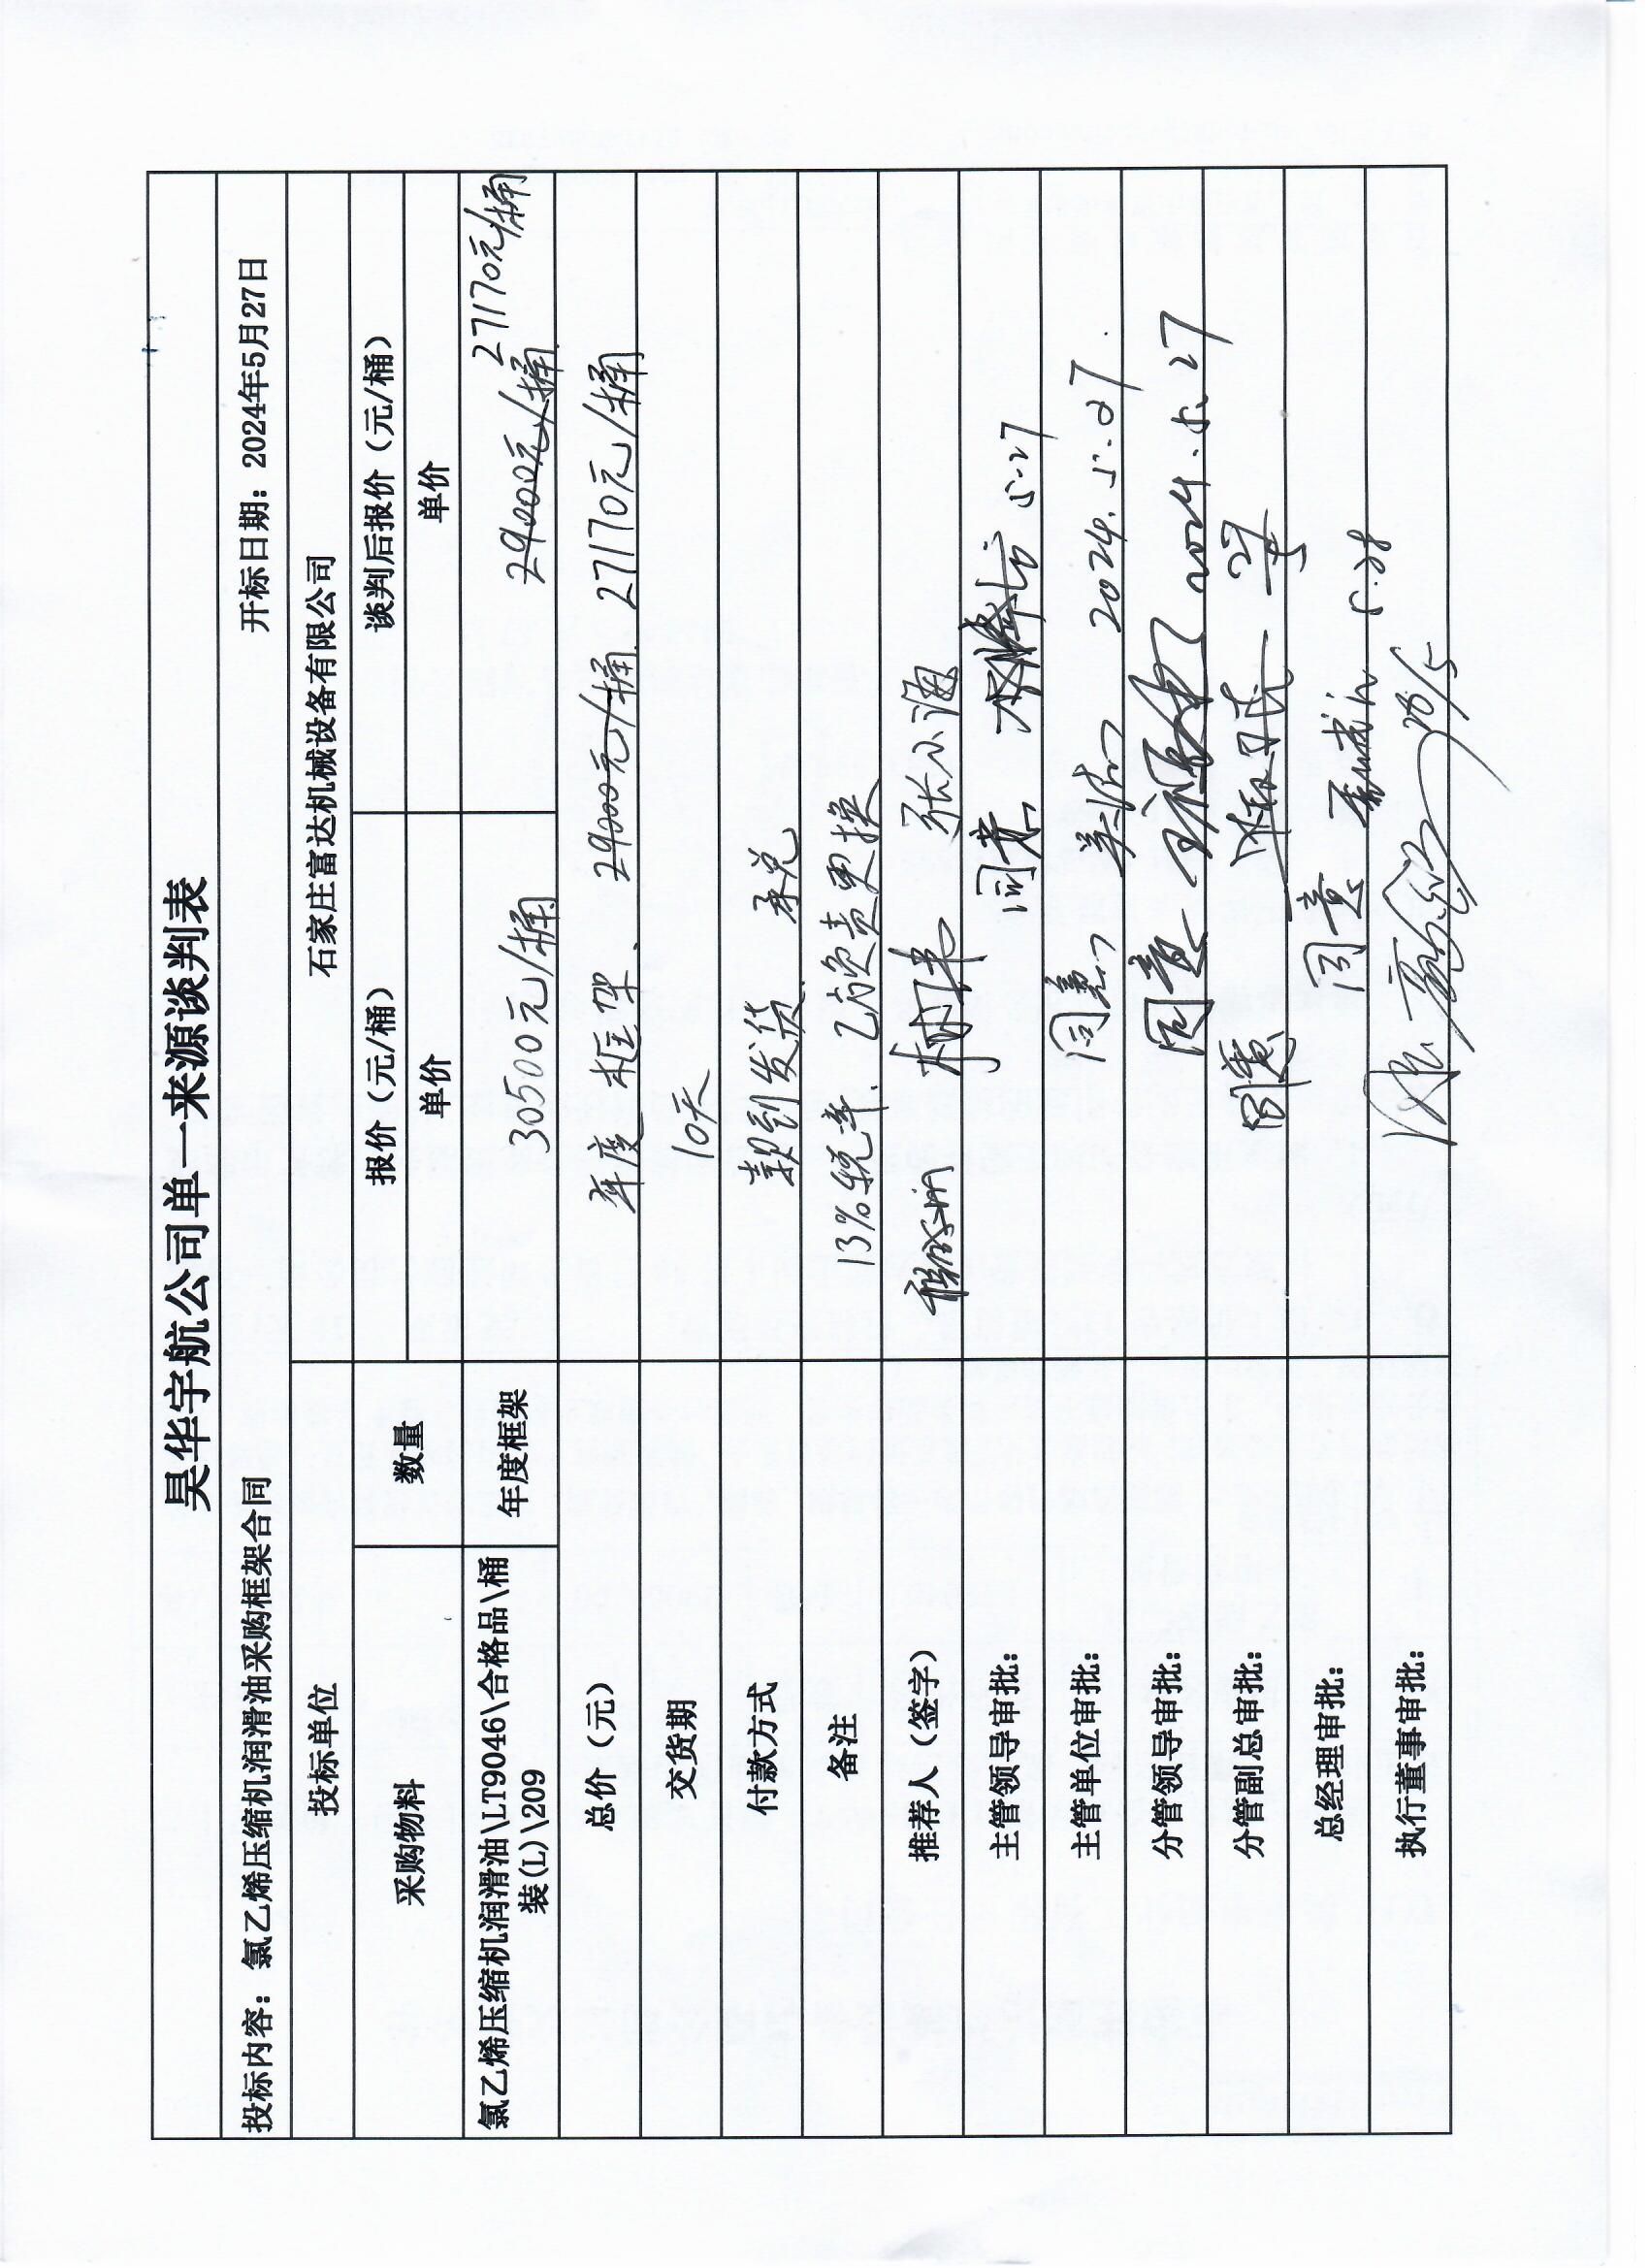 昊华宇航公司单一来源谈判表
投标内容：氯乙烯压缩机润滑油采购框架合同 开标日期：2024年5月27日
投标单位 石家庄富达机械设备有限公司
采购物料 数量 报价（元/桶） 谈判后报价（元/桶）
单价 单价
氯乙烯压缩机润滑油\LT9046\合格品\桶
装(L)\209
年度框架 30500元/桶 29000元/桶 27170元/桶
总价（元） 年度框架、29000元/桶 27170元/桶
交货期 10天
付款方式 款到发货、承兑
备注 13%税率、乙方负责更换
推荐人（签字）
主管领导审批： 同意 5.27
主管单位审批： 同意 2024.5.27.
分管领导审批： 同意 2024.5.27
分管副总审批： 同意
总经理审批： 同意 5.28
执行董事审批： 28/5